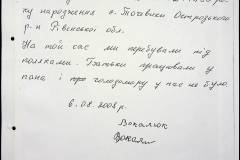 ку народження с. Точевики Острозского
р-н Рівенської обл.
На той час ми перебували під
поляками. Батьки працювали у
пана і про голодомору у нас не було.
6.08.2008 р.
Вокалюк